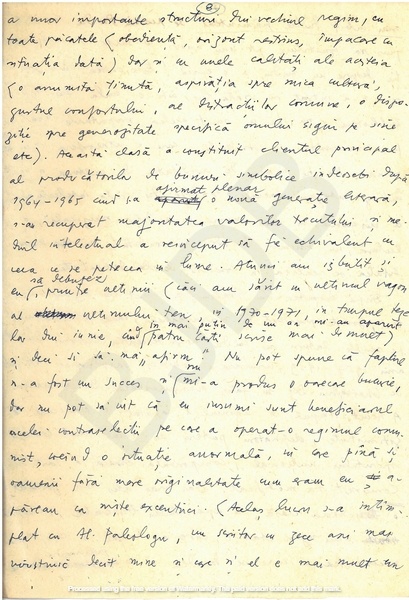 8
a unor importante structuri din vechiul regim, cu
toate păcatele (obediență, orizont restrîns, împăcare cu
situația dată) dar și cu unele calități ale acesteia
(o anumită ținută, aspirația spre mica cultură,
gustul confortului, al distracțiilor comune, o dispo-
ziție spre generozitate specifică omului sigur pe sine
etc). Această clasă a constituit clientul principal
al producătorilor de bunuri simbolice îndeosebi după
afirmat plenar
1964-1965 cînd s-a o nouă generație literară,
s-au recuperat majoritatea valorilor trecutului și me-
diul intelectual a reînceput să fie echivalent cu
ceea ce se petrecea în lume. Atunci am izbutit și
să debutez
eu, printre ultimii (căci am sărit în ultimul vagon
al ultimului tren, în 1970-1971, în timpul teze-
în mai puțin de un an mi-au apărut
lor din iunie, cînd patru cărți scrise mai demult)
și deci și să mă „afirm”. Nu pot spune că faptul
nu
n-a fost un succes și mi-a produs o oarecare bucurie,
dar nu pot să uit că eu însumi sunt beneficiarul
acelei contraselecții pe care a operat-o regimul comu-
nist, creînd o situație anormală, în care pînă și
oamenii fără mare originalitate cum eram eu a-
păreau ca niște excentrici. (Același lucru s-a întîm-
plat cu Al. Paleologu, un scriitor cu zece ani mai
vîrstnic decît mine și care și el e mai mult un